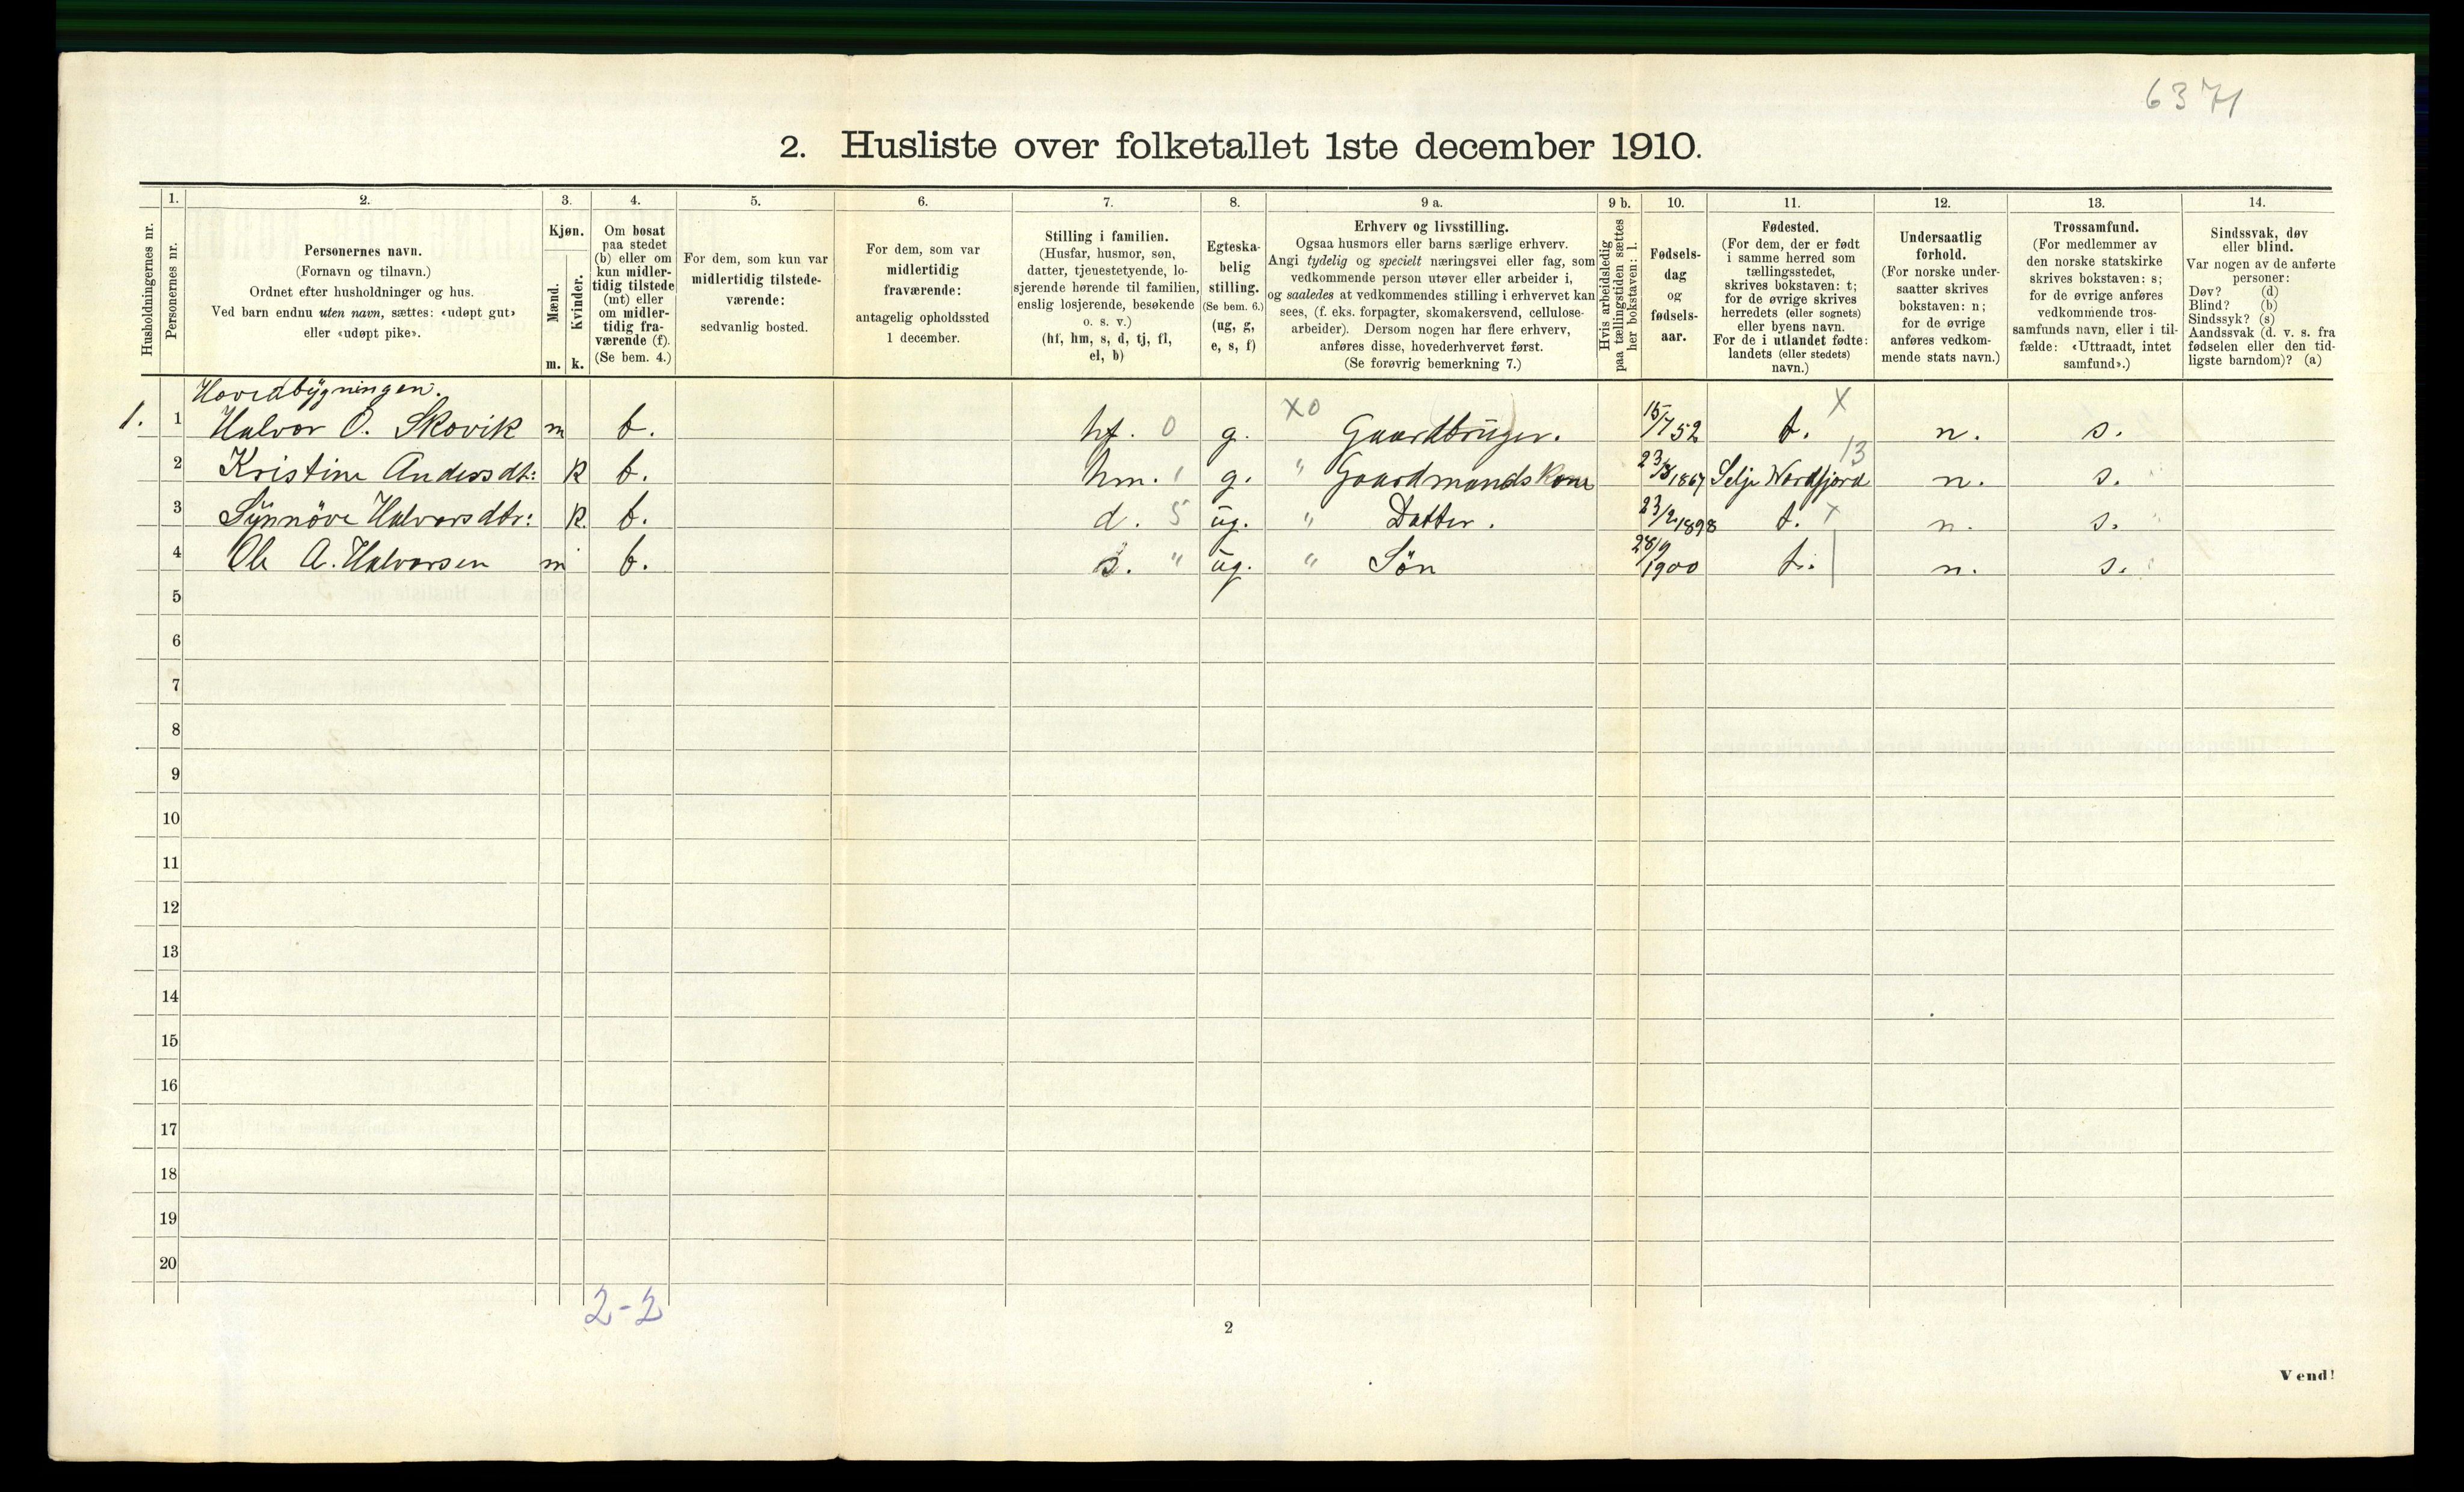 6371
2. Husliste over folketallet 1ste december 1910.
Husholdningernes nr.
1.
Personernes nr.
2.
Personernes navn.
(Fornavn og tilnavn.)
Ordnet efter husholdninger og hus.
Ved barn endnu uten navn, sættes: «udøpt gut»
eller «udøpt pike».
3.
Kjøn.
Mænd.
Kvinder.
m. k.
4.
Om bosat
paa stedet
(b) eller om
kun midler-
tidig tilstede
(mt) eller
om midler-
tidig fra-
værende (f).
(Se bem. 4.)
5.
For dem, som kun var
midlertidig tilstede-
værende:
sedvanlig bosted.
6.
For dem, som var
midlertidig
fraværende:
antagelig opholdssted
1 december.
7.
Stilling i familien.
(Husfar, husmor, søn,
datter, tjenestetyende, lo-
sjerende hørende til familien,
enslig losjerende, besøkende
o. s. v.)
(hf, hm, s, d, tj, fl,
el, b)
8.
Egteska-
belig
stilling.
(Se bem. 6.)
(ug, g,
e, s, f)
9 a.
Erhverv og livsstilling.
Ogsaa husmors eller barns særlige erhverv.
Angi tydelig og specielt næringsvei eller fag, som
vedkommende person utøver eller arbeider i,
og saaledes at vedkommendes stilling i erhvervet kan
sees, (f. eks. forpagter, skomakersvend, cellulose-
arbeider). Dersom nogen har flere erhverv,
anføres disse, hovederhvervet først.
(Se forøvrig bemerkning 7.)
9 b.
Hvis arbeidsledig
paa tællingstiden sættes
her bokstaven: l.
10.
Fødsels-
dag
og
fødsels-
aar.
11.
Fødested.
(For dem, der er født
i samme herred som
tællingsstedet,
skrives bokstaven: t;
for de øvrige skrives
herredets (eller sognets)
eller byens navn.
For de i utlandet fødte:
landets (eller stedets)
navn.)
12.
Undersaatlig
forhold.
(For norske under-
saatter skrives
bokstaven: n;
for de øvrige
anføres vedkom-
mende stats navn.)
13.
Trossamfund.
(For medlemmer av
den norske statskirke
skrives bokstaven: s;
for de øvrige anføres
vedkommende tros-
samfunds navn, eller i til-
fælde: «Uttraadt, intet
samfund».)
14.
Sindssvak, døv
eller blind.
Var nogen av de anførte
personer:
Døv? (d)
Blind? (b)
Sindssyk? (s)
Aandssvak (d. v. s. fra
fødselen eller den tid-
ligste barndom)? (a)
Hovedbygningen.
1. 1 Halvor O. Skovik m b. hf. 0 g. X0 Gaardbruger. 15/7 52 t. X n. s.
2 Kristine Andersdt: k b. hm. 1 g. " Gaardmandskone 23/8 1867 Selje Nordfjord 13 n. s.
3 Synnöve Halvorsdtr: k. b. d. 5 ug. " Datter. 23/2 1898 t. X n. s.
4 Ole A. Halvorsen m b. s. " ug. " Søn 28/9 1900 t. n. s.
5
6
7
8
9
10
11
12
13
14
15
16
17
18
19
20
2-2
2
Vend!